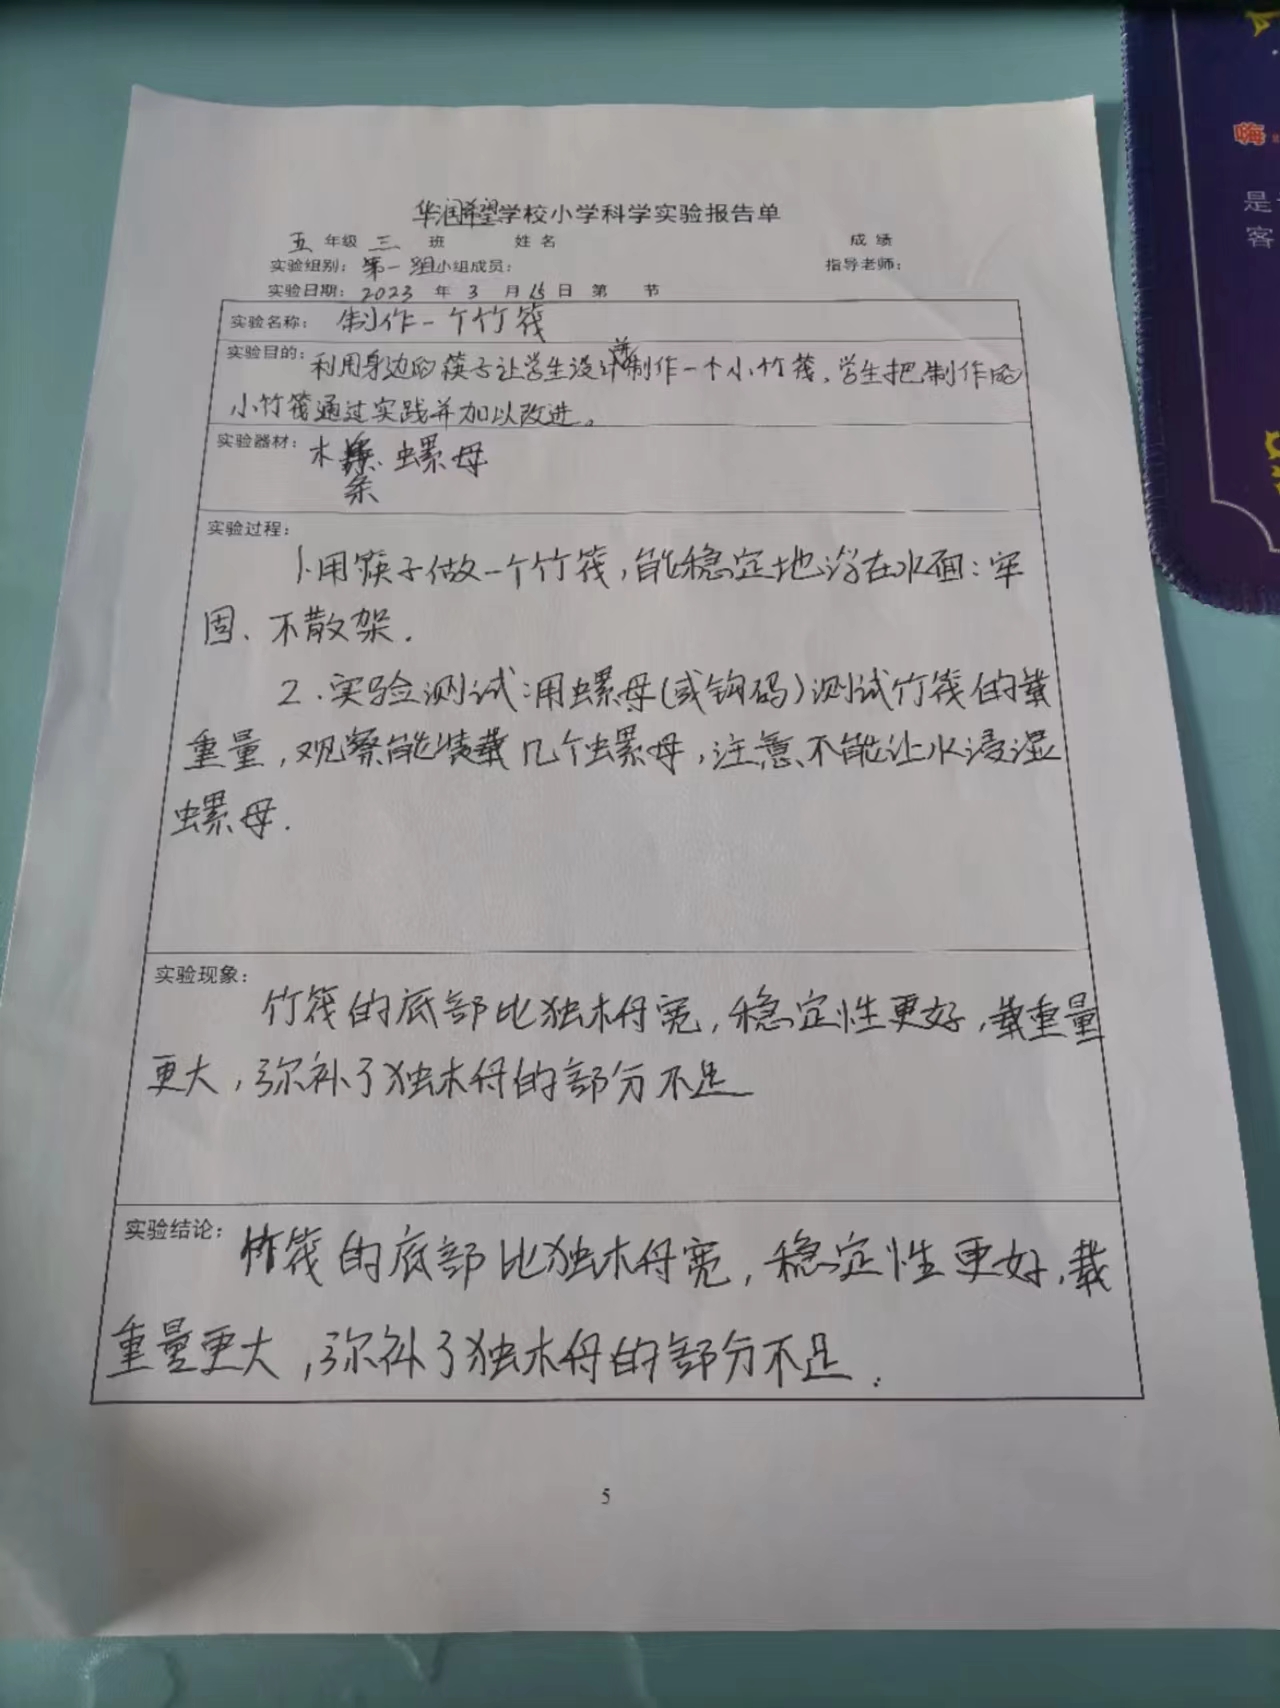 华润希望学校小学科学实验报告单
五 年级 三 班 姓名 成绩
实验组别：第一组小组成员： 指导老师：
实验日期：2023 年 3 月 15 日 第 节
实验名称： 制作一个竹筏
实验目的：利用身边的筷子让学生设计并制作一个小竹筏，学生把制作的
小竹筏通过实践并加以改进。
实验器材： 木条 螺母
实验过程：
1.用筷子做一个竹筏，能稳定地浮在水面：牢
固、不散架.
2.实验测试：用螺母(或钩码)测试竹筏的载
重量，观察能装载几个螺母，注意不能让水浸湿
螺母.
实验现象：
竹筏的底部比独木舟宽，稳定性更好，载重量
更大，弥补了独木舟的部分不足
实验结论： 竹筏的底部比独木舟宽，稳定性更好，载
重量更大，弥补了独木舟的部分不足.
5
是
客